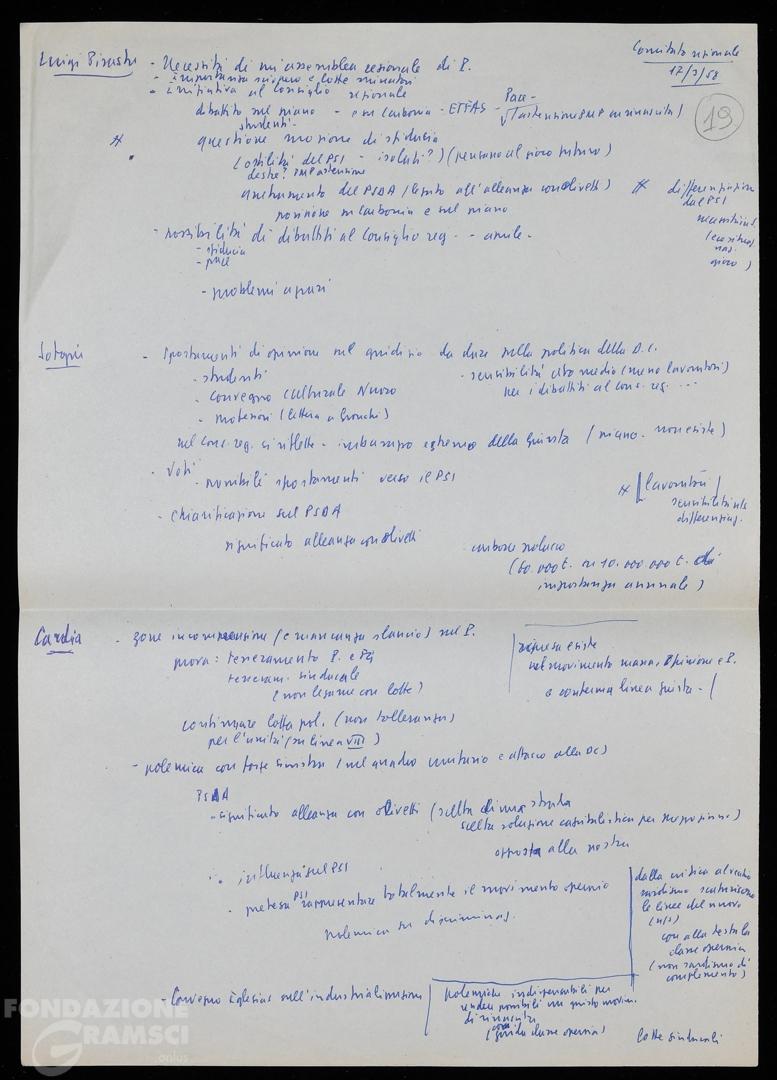 Comitato regionale
17/3/58
19
Luigi Pirastu - Necessità di un'assemblea regionale di P.
- importanza sciopero e lotte minatori
- iniziativa al Consiglio regionale
dibattito sul piano - su Carbonia - ETFAS - Pace -
studenti -
questione mozione di sfiducia
(ostilità del PSI - isolati?) (pensano al gioco futuro)
destre?
atteggiamento del PSDA (legato all'alleanza con Olivetti)
posizione su Carbonia e sul piano
differenziazione
dal PSI
necessaria
- possibilità di dibattiti al Consiglio reg. -
- sfiducia
- pace
- problemi agrari
- Spostamenti di opinione sul giudizio da dare sulla politica della D.C.
- studenti
- convegno culturale Nuoro
- (lettera a Gronchi)
- sensibilità ceto medio (meno lavoratori)
per i dibattiti al cons. reg. ...
nel cons. reg. si riflette - imbarazzo estremo della Giunta (piano - non esiste)
- Voti
- possibili spostamenti verso il PSI
lavoratori
sensibilità
- Chiarificazione sul PSDA
significato alleanza con Olivetti
carbone polacco
(60.000 t. su 10.000.000 t. di
importanza annuale)
Cardia - zone incomprensione (e mancanza slancio) nel P.
prova: tesseramento P. e FGi
tesseram. sindacale
(non legame con lotte)
ripresa esiste
nel movimento massa, opinione e P.
e conferma linea giusta -
continuare lotta pol. (non tolleranza)
per l'unità (su linea VIII)
- polemica con forze sinistra (nel quadro unitario e attacco alla DC)
PSdA
- significato alleanza con Olivetti (scelta di una strada
scelta soluzione capitalistica per
opposta alla nostra
- influenza sul PSI
- pretesa PSI rappresentare totalmente il movimento operaio
polemica su
dalla critica al vecchio
sardismo
le linee del nuovo
con alla testa la
classe operaia
(non sardismo di
complemento)
Convegno Iglesias sull'industrializzazione
polemiche indispensabili per
rendere possibili un giusto movim.
di rinascita
(guida classe operaia)
lotte sindacali
FONDAZIONE
GRAMSCI
onlus